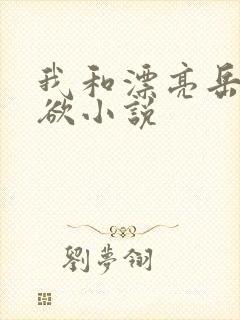 我和漂亮岳
欲小说
劉夢翎